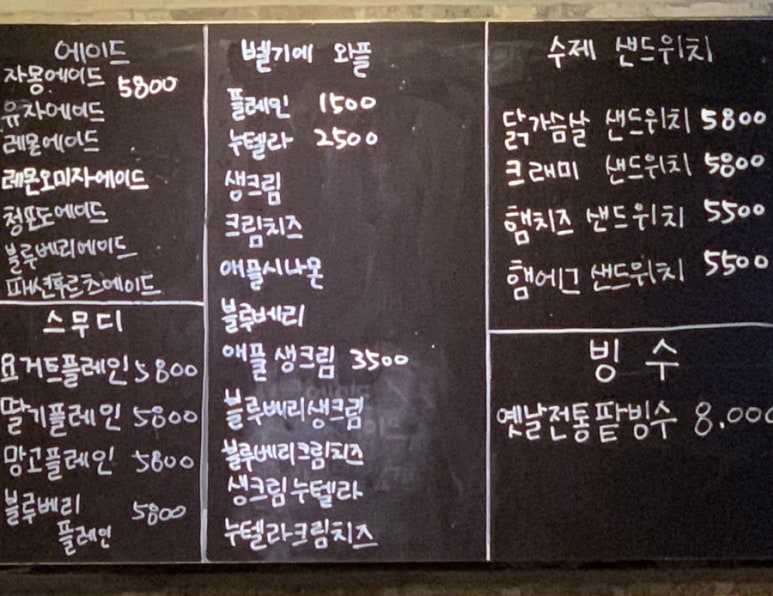 에이드
자몽에이드 5800
유자에이드
레몬에이드
레몬오미자에이드
청포도에이드
블루베리에이드
패션후르츠에이드
스무디
요거트플레인 5800
딸기플레인 5800
망고플레인 5800
블루베리 5800
플레인
벨기에 와플
플레인 1500
누텔라 2500
생크림
크림치즈
애플시나몬
블루베리
애플 생크림 3500
블루베리생크림
블루베리크림치즈
생크림누텔라
누텔라크림치즈
수제 샌드위치
닭가슴살 샌드위치 5800
크래미 샌드위치 5800
햄치즈 샌드위치 5500
햄에그 샌드위치 5500
빙수
옛날전통팥빙수 8.000